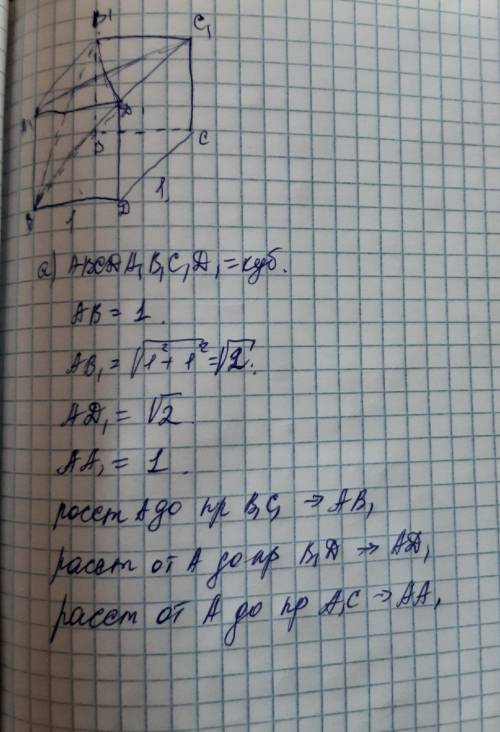 B1
C1
A1
D1
B
C
A
D
1
1
а) ABCDA1B1C1D1 = куб.
AB = 1.
AB1 = √1²+1² = √2.
AD1 = √2.
AA1 = 1.
расст A до пр B1C1 → AB1
расст от A до пр B1D → AD1
расст от A до пр A1C → AA1